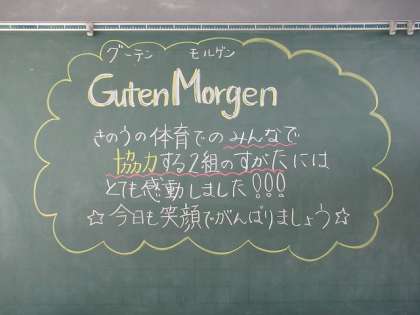 グーテン モルゲン
Guten Morgen
きのうの体育でのみんなで
協力する2組のすがたには
とても感動しました!!!
☆今日も笑顔でがんばりましょう☆